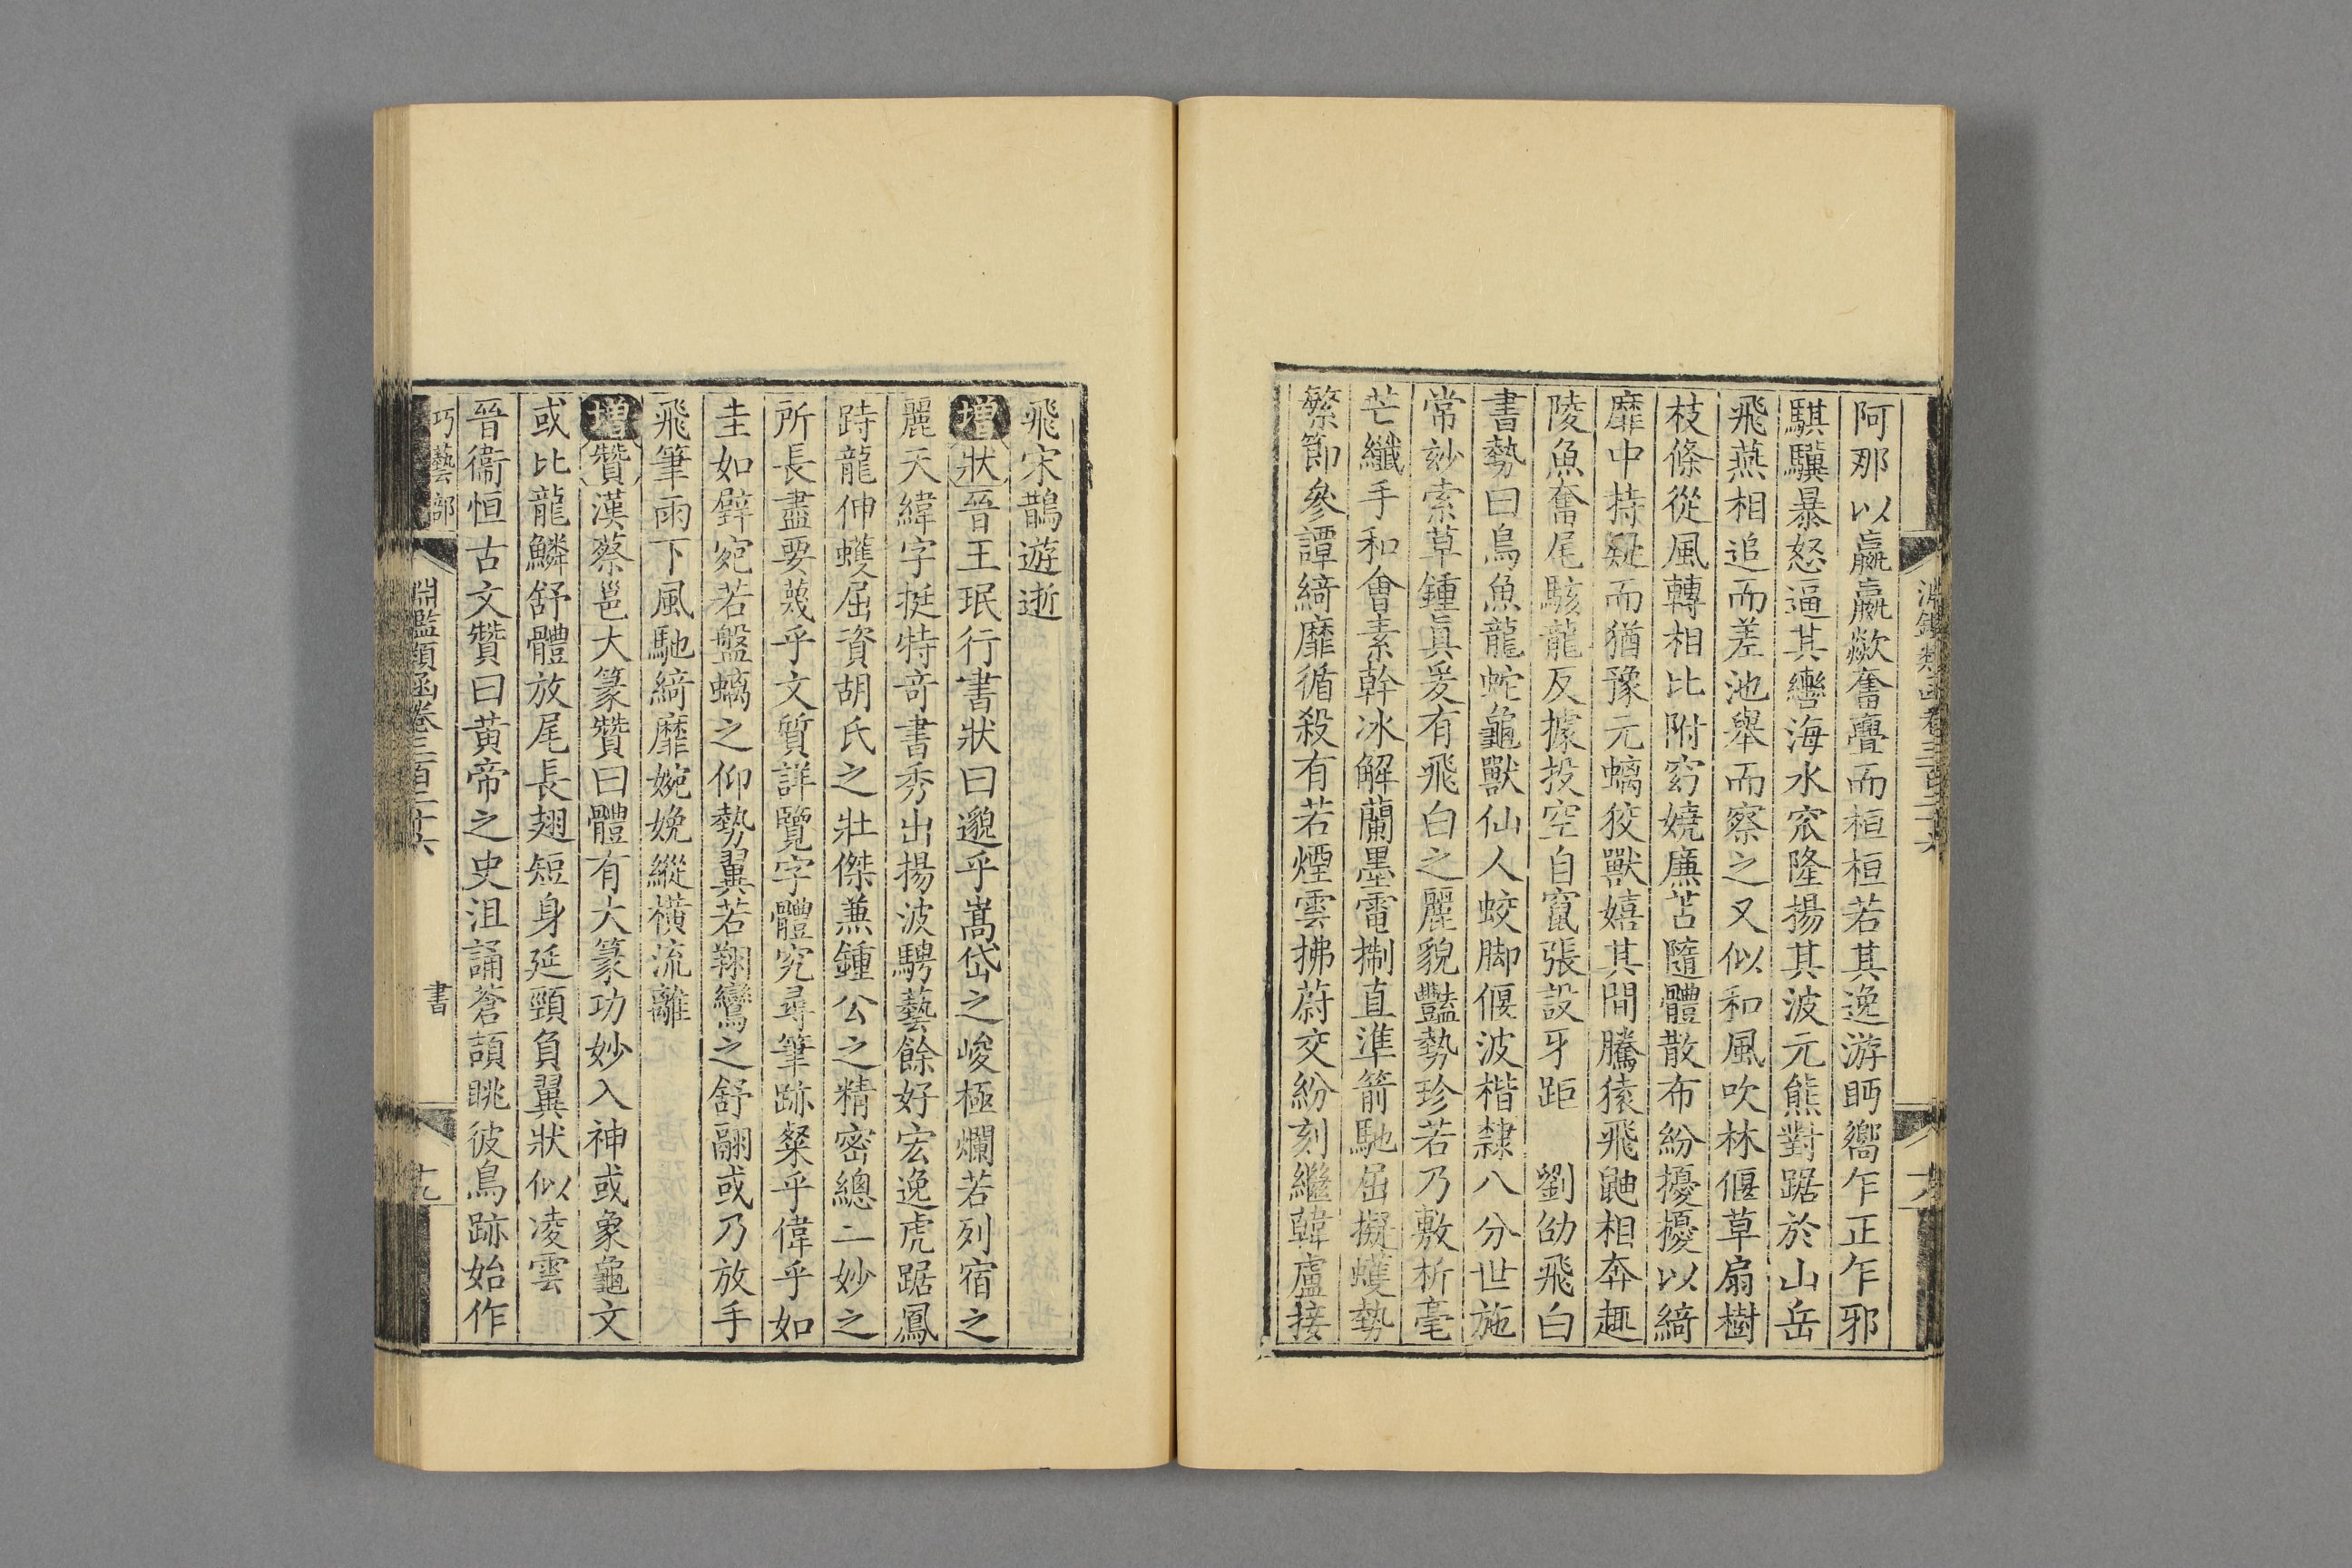 阿那以嬴嬴歘奮亹而桓桓若其逸游眄嚮乍正乍邪
騏驥暴怒逼其轡海水窊隆揚其波元熊對踞於山岳
飛燕相追而差池舉而察之又似和風吹林偃草扇樹
枝條從風轉相比附窈嬈廉苫隨體散布紛擾擾以綺
靡中持疑而猶豫元螭狡獸嬉其間騰猿飛鼬相奔趣
陵魚奮尾駭龍反據投空自竄張設牙距　劉劭飛白
書勢曰鳥魚龍蛇龜獸仙人蛟脚偃波楷隸八分世施
常妙索草鍾眞爰有飛白之麗貌豔勢珍若乃敷析毫
芒纖手和會素幹冰解蘭墨電掣直準箭馳屈擬蠖勢
繁節參譚綺靡循殺有若煙雲拂蔚交紛刻繼韓盧接
飛宋鵲遊逝
增狀晉王珉行書狀曰邈乎嵩岱之峻極爛若列宿之
麗天緯字挺特奇書秀出揚波騁藝餘好宏逸虎踞鳳
跱龍伸蠖屈資胡氏之壯傑兼鍾公之精密總二妙之
所長盡要蔑乎文質詳覽字體究尋筆跡粲乎偉乎如
圭如璧宛若盤螭之仰勢翼若翔鸞之舒翮或乃放手
飛筆雨下風馳綺靡婉娩縱橫流離
增贊漢蔡邕大篆贊曰體有大篆功妙入神或象龜文
或比龍鱗舒體放尾長翅短身延頸負翼狀似凌雲
晉衞恒古文贊曰黃帝之史沮誦蒼頡眺彼鳥跡始作
巧藝部
淵鑑類函卷三百二十六
書
十九